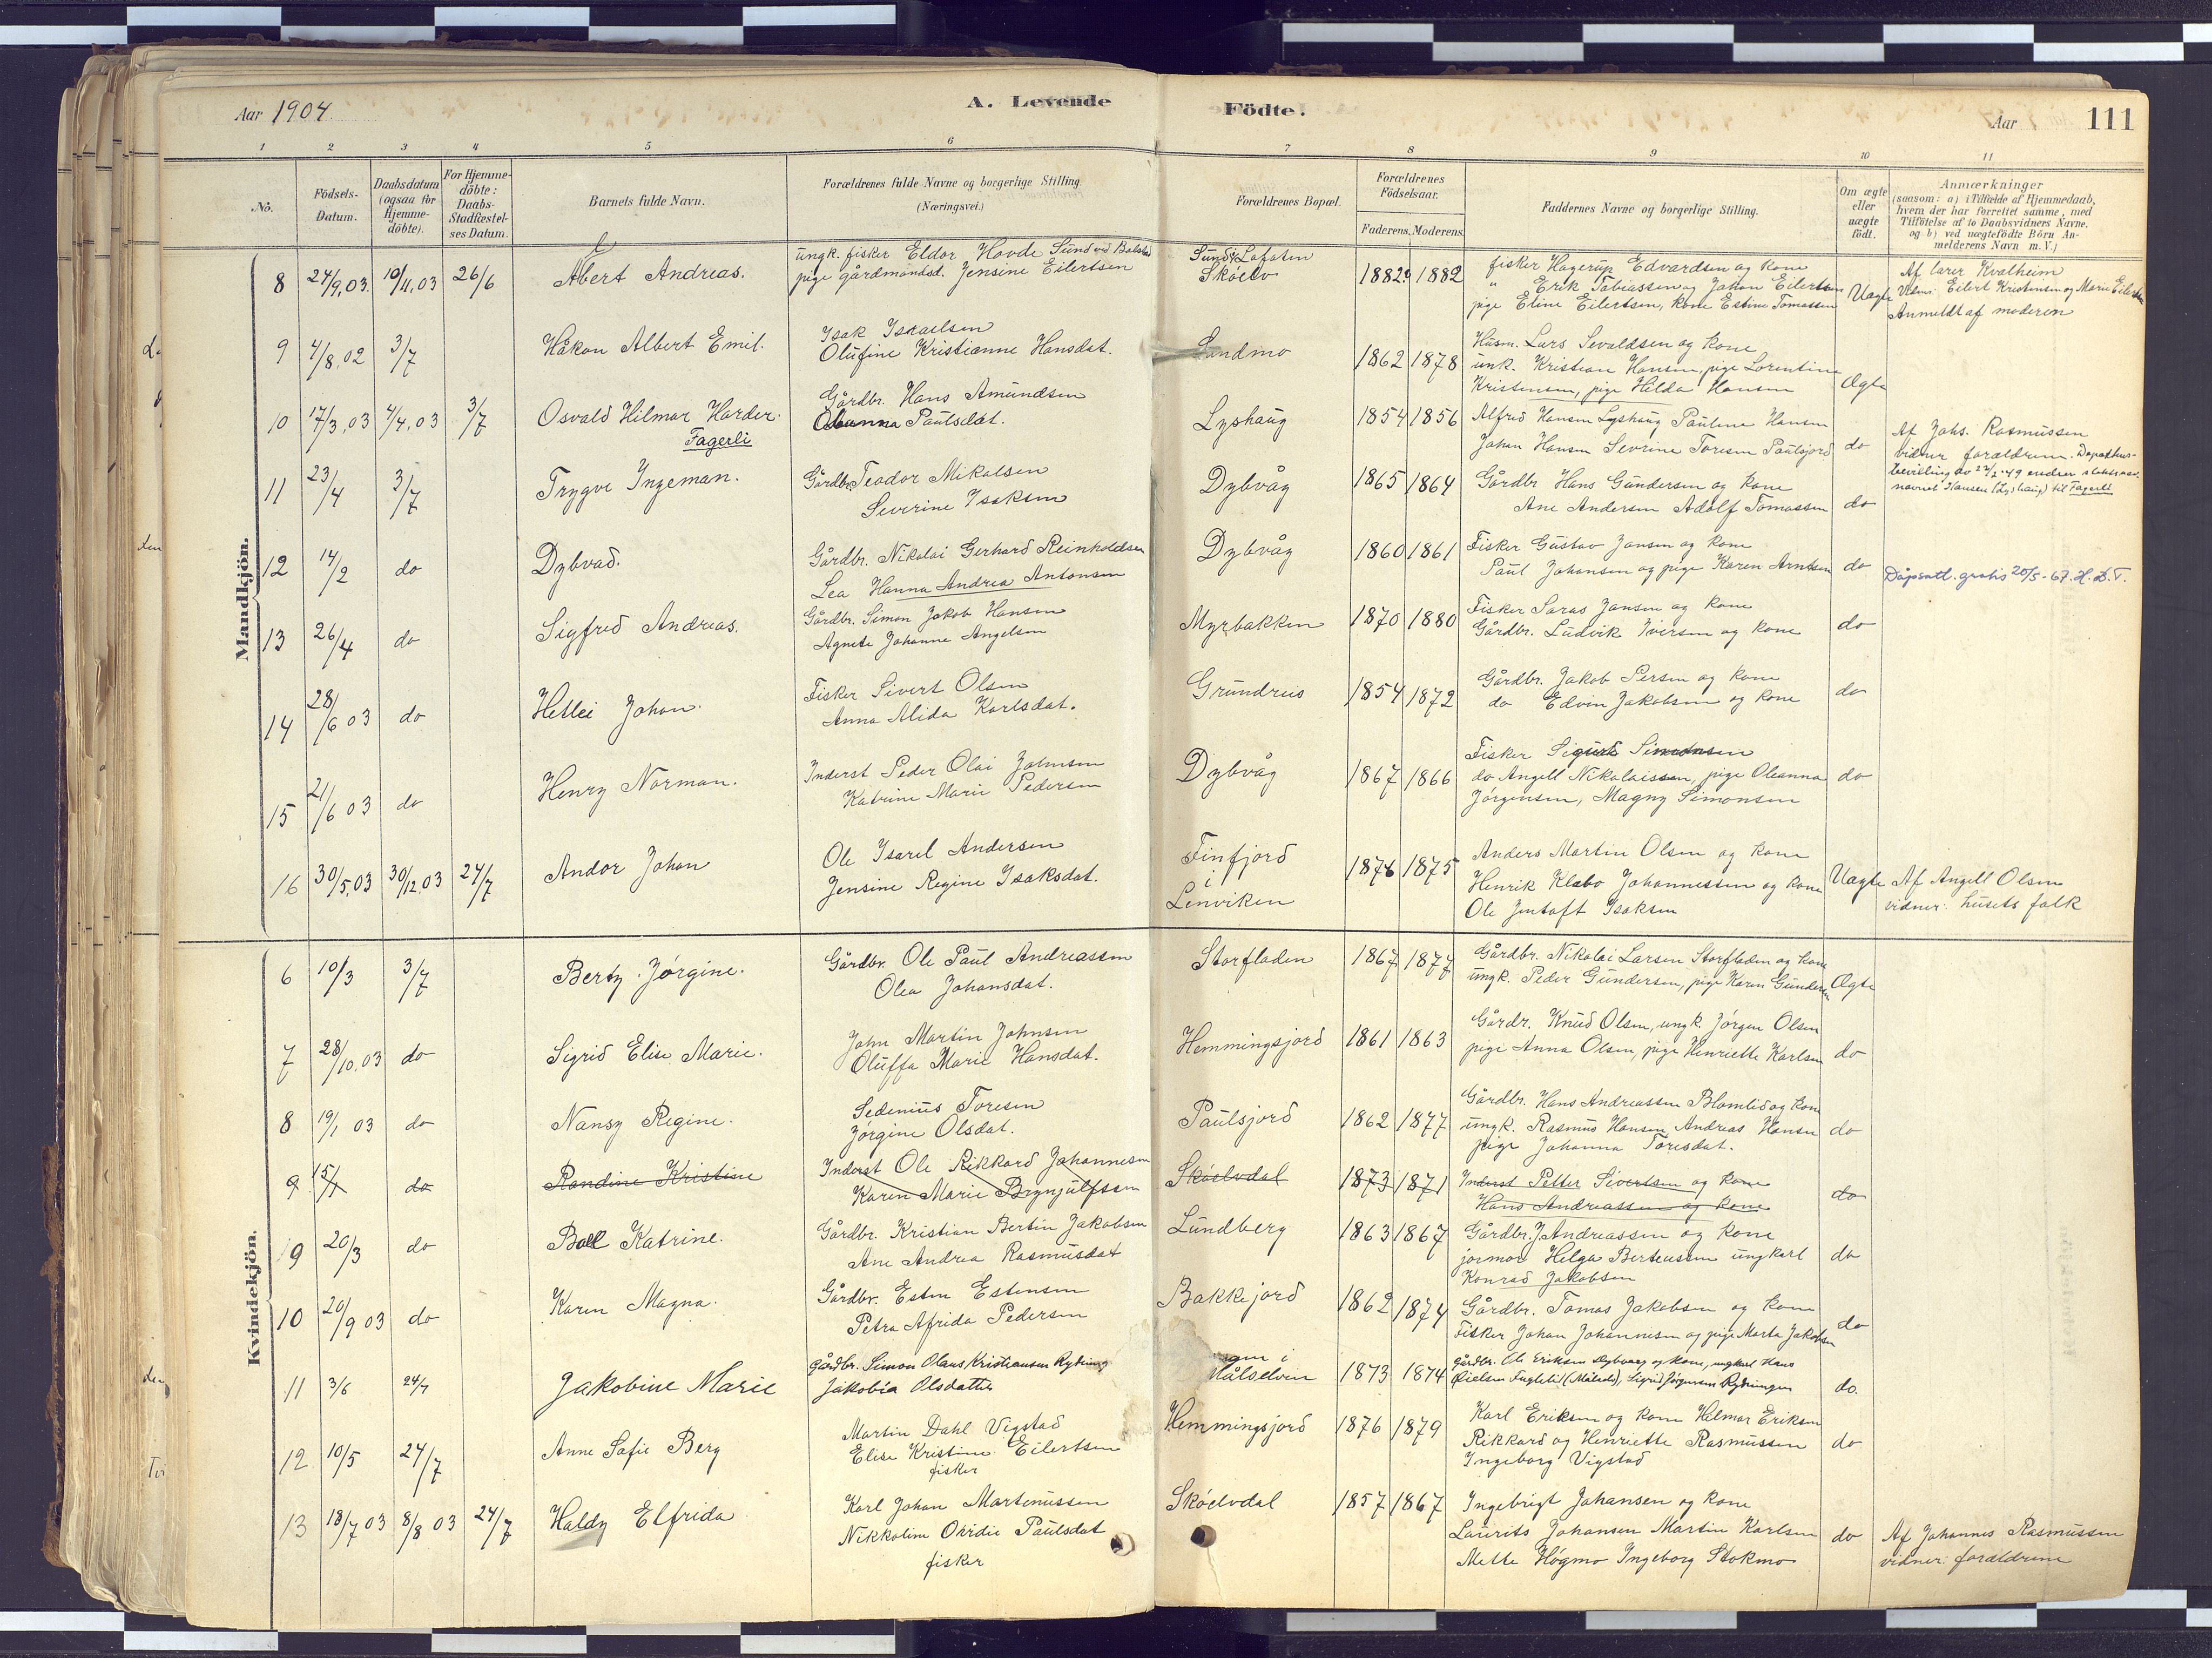 Aar 1904.
A. Levende Födte.
Aar
111
1 2 3 4 5 6 7 8 9 10 11
No.
Födsels-Datum.
Daabsdatum (ogsaa for Hjemme-döbte).
For Hjemme-döbte: Daabs-Stadfæstel-ses Datum.
Barnets fulde Navn.
Forældrenes fulde Navne og borgerlige Stilling.
(Næringsvei.)
Forældrenes Bopæl.
Forældrenes Födselsaar.
Faderens. Moderens.
Faddernes Navne og borgerlige Stilling.
Om ægte eller uægte födt.
Anmærkninger
(saasom: a) i Tilfælde af Hjemmedaab,
hvem der har forrettet samme, med
Tilföielse af to Daabsvidners Navne,
og b) ved uægtefödte Börn An-
melderens Navn m. V.)
Mandkjön.
8 24/9,03. 10/11,03 26/6 Abert Andreas.
ungk. fisker Eldor Hovde Sund ved Balstad
pige gårdmandsd. Jensine Eilertsen
Sund i Lofoten
Skóelv
1882? 1882
fisker Hagerup Edvardsen og kone
" Erik Tobiassen og Johan Eilertsen
pige Eline Eilertsen, kone Estine Tomassen
Uægte
Af lærer Kvalheim
Vidner: Eilert Kristensen og Marie Eilertsen
Anmeldt af moderen
9 4/8,02 3/7 Håkon Albert Emil.
Isak Israelsen
Olufine Kristianne Hansdat.
Sandmo 1862 1878
Husm. Lars Sevaldsen og kone
unk. Kristian Hansen, pige Lorentine
Kristensen, pige Hilda Hansen
Ægte
10 17/3,03 4/4,03 3/7 Osvald Hilmar Harder.
Fagerli
Gårdbr. Hans Amundsen
Paulsdat.
Lyshaug 1854 1856
Alfred Hansen Lyshaug Pauline Hansen
Johan Hansen Severine Toresen Paulsjord
do
Af Johs. Rasmussen
vidner forældrene.
bevilling av
navnet Hansen (Lyshaug) til Fagerli
11 23/4 3/7 Trygve Ingeman.
Gårdbr. Teodor Mikalsen
Severine Isaksen
Dybvåg 1865 1864
Gårdbr Hans Gundersen og kone
Ane Andersen Adolf Tomassen
do
12 14/2 do Dybvad.
Gårdbr. Nikolai Gerhard Reinholdsen
Lea Hanna Andrea Antonsen
Dybvåg 1860 1861
Fisker Gustav Jansen og kone
Paul Johansen og pige Karen Arntsen
do
Dåpsatt. gratis 20/5-67. H.D.T.
13 26/4 do Sigfred Andreas.
Gårdbr. Simon Jakob Hansen
Agnete Johanne Angelsen
Myrbakken 1870 1880
Fisker Saras Jansen og kone
Gårdbr. Ludvik Iversen og kone
do
14 28/6 03 do Hetlei Johan.
Fisker Sivert Olsen
Anna Alida Karlsdat.
Grundreis 1854 1872
Gårdbr. Jakob Persen og kone
do Edvin Jakobsen og kone
do
15 21/6 03 do Henry Norman.
Inderst Peder Olai Johnsen
Katrine Marie Pedersen
Dybvåg 1867 1866
Fisker Sigurd Simonsen
do Angell Nikolaissen, pige Oleanna
Jörgensen, Magny Simonsen
do
16 30/5,03 30/12,03 24/7 Andor Johan
Ole Isarel Andersen
Jensine Regine Isaksdat.
Finfjord
i
Lenviken
1876 1875
Anders Martin Olsen og kone
Henrik Klæbo Johannessen og kone
Ole Jentoft Isaksen
Uægte
Af Angell Olsen
vidner: husets folk
Kvindekjön.
6 10/3 3/7 Berty Jörgine.
Gårdbr. Ole Paul Andreassen
Olea Johansdat.
Storfladen 1867 1877
Gårdbr. Nikolai Larsen Storfladen og kone
ungk. Peder Gundersen, pige Karen Gundersen
Ægte
7 28/10,03 do Sigrid Elise Marie.
John Martin Johnsen
Oluffa Marie Hansdat.
Hemmingsjord 1861 1863
Gårdr. Knud Olsen, ungk. Jörgen Olsen
pige Anna Olsen, pige Henriette Karlsen
do
8 19/1 03 do Nansy Regine.
Sedenius Toresen
Jörgine Olsdat.
Paulsjord 1862 1877
Gårdbr. Hans Andreassen Blomlid og kone
ungk. Rasmus Hansen Andreas Hansen
pige Johanna Toresdat.
do
9 15/1 do Randine Kristine
Inderst Ole Rikkard Johannesen
Karen Marie Brynjulfsen
Skóelvdal 1873 1871
Inderst Petter Sivertsen og kone
Hans Andreassen og kone
do
9 20/3 do Katrine.
Gårdbr. Kristian Bertin Jakobsen
Ane Andrea Rasmusdat
Lundberg 1863 1867
Gårdbr. J Andreassen og kone
jormor Helga Berteussen ungkarl
Konrad Jakobsen
do
10 20/9 03 do Karen Magna.
Gårdbr. Esten Estensen
Petra Afrida Pedersen
Bakkejord 1862 1874
Gårdbr. Tomas Jakobsen og kone
Fisker Johan Johannesen og pige Marta Jakobsen
do
11 3/6 24/7 Jakobine Marie
Gårdbr. Simon Olaus Kristiansen Rydning
Jakobia Olsdatter
i
Målselven 1873 1874
gårdbr. Ole Eriksen Dybvaag og kone, ungkarl Hans
Fuglelid (Målselv), Sigrid Jörgensen Rydningen
do.
12 10/5 24/7 Anne Sofie Berg
Martin Dahl Vigstad
Elise Kristine Eilertsen
fisker
Hemmingsjord 1876 1879
Karl Eriksen og kone Hilmar Eriksen
Rikkard og Henriette Rasmussen
Ingeborg Vigstad
do
13 18/7 03 8/8 03 24/7 Haldy Elfrida
Karl Johan Martinussen
Nikkoline Ovidie Paulsdat
fisker
Skóelvdal 1857 1867
Ingebrigt Johansen og kone
Laurits Johansen Martin Karlsen
Mette Högmo Ingeborg Stokmo
do
Af Johannes Rasmussen
vidner: forældrene